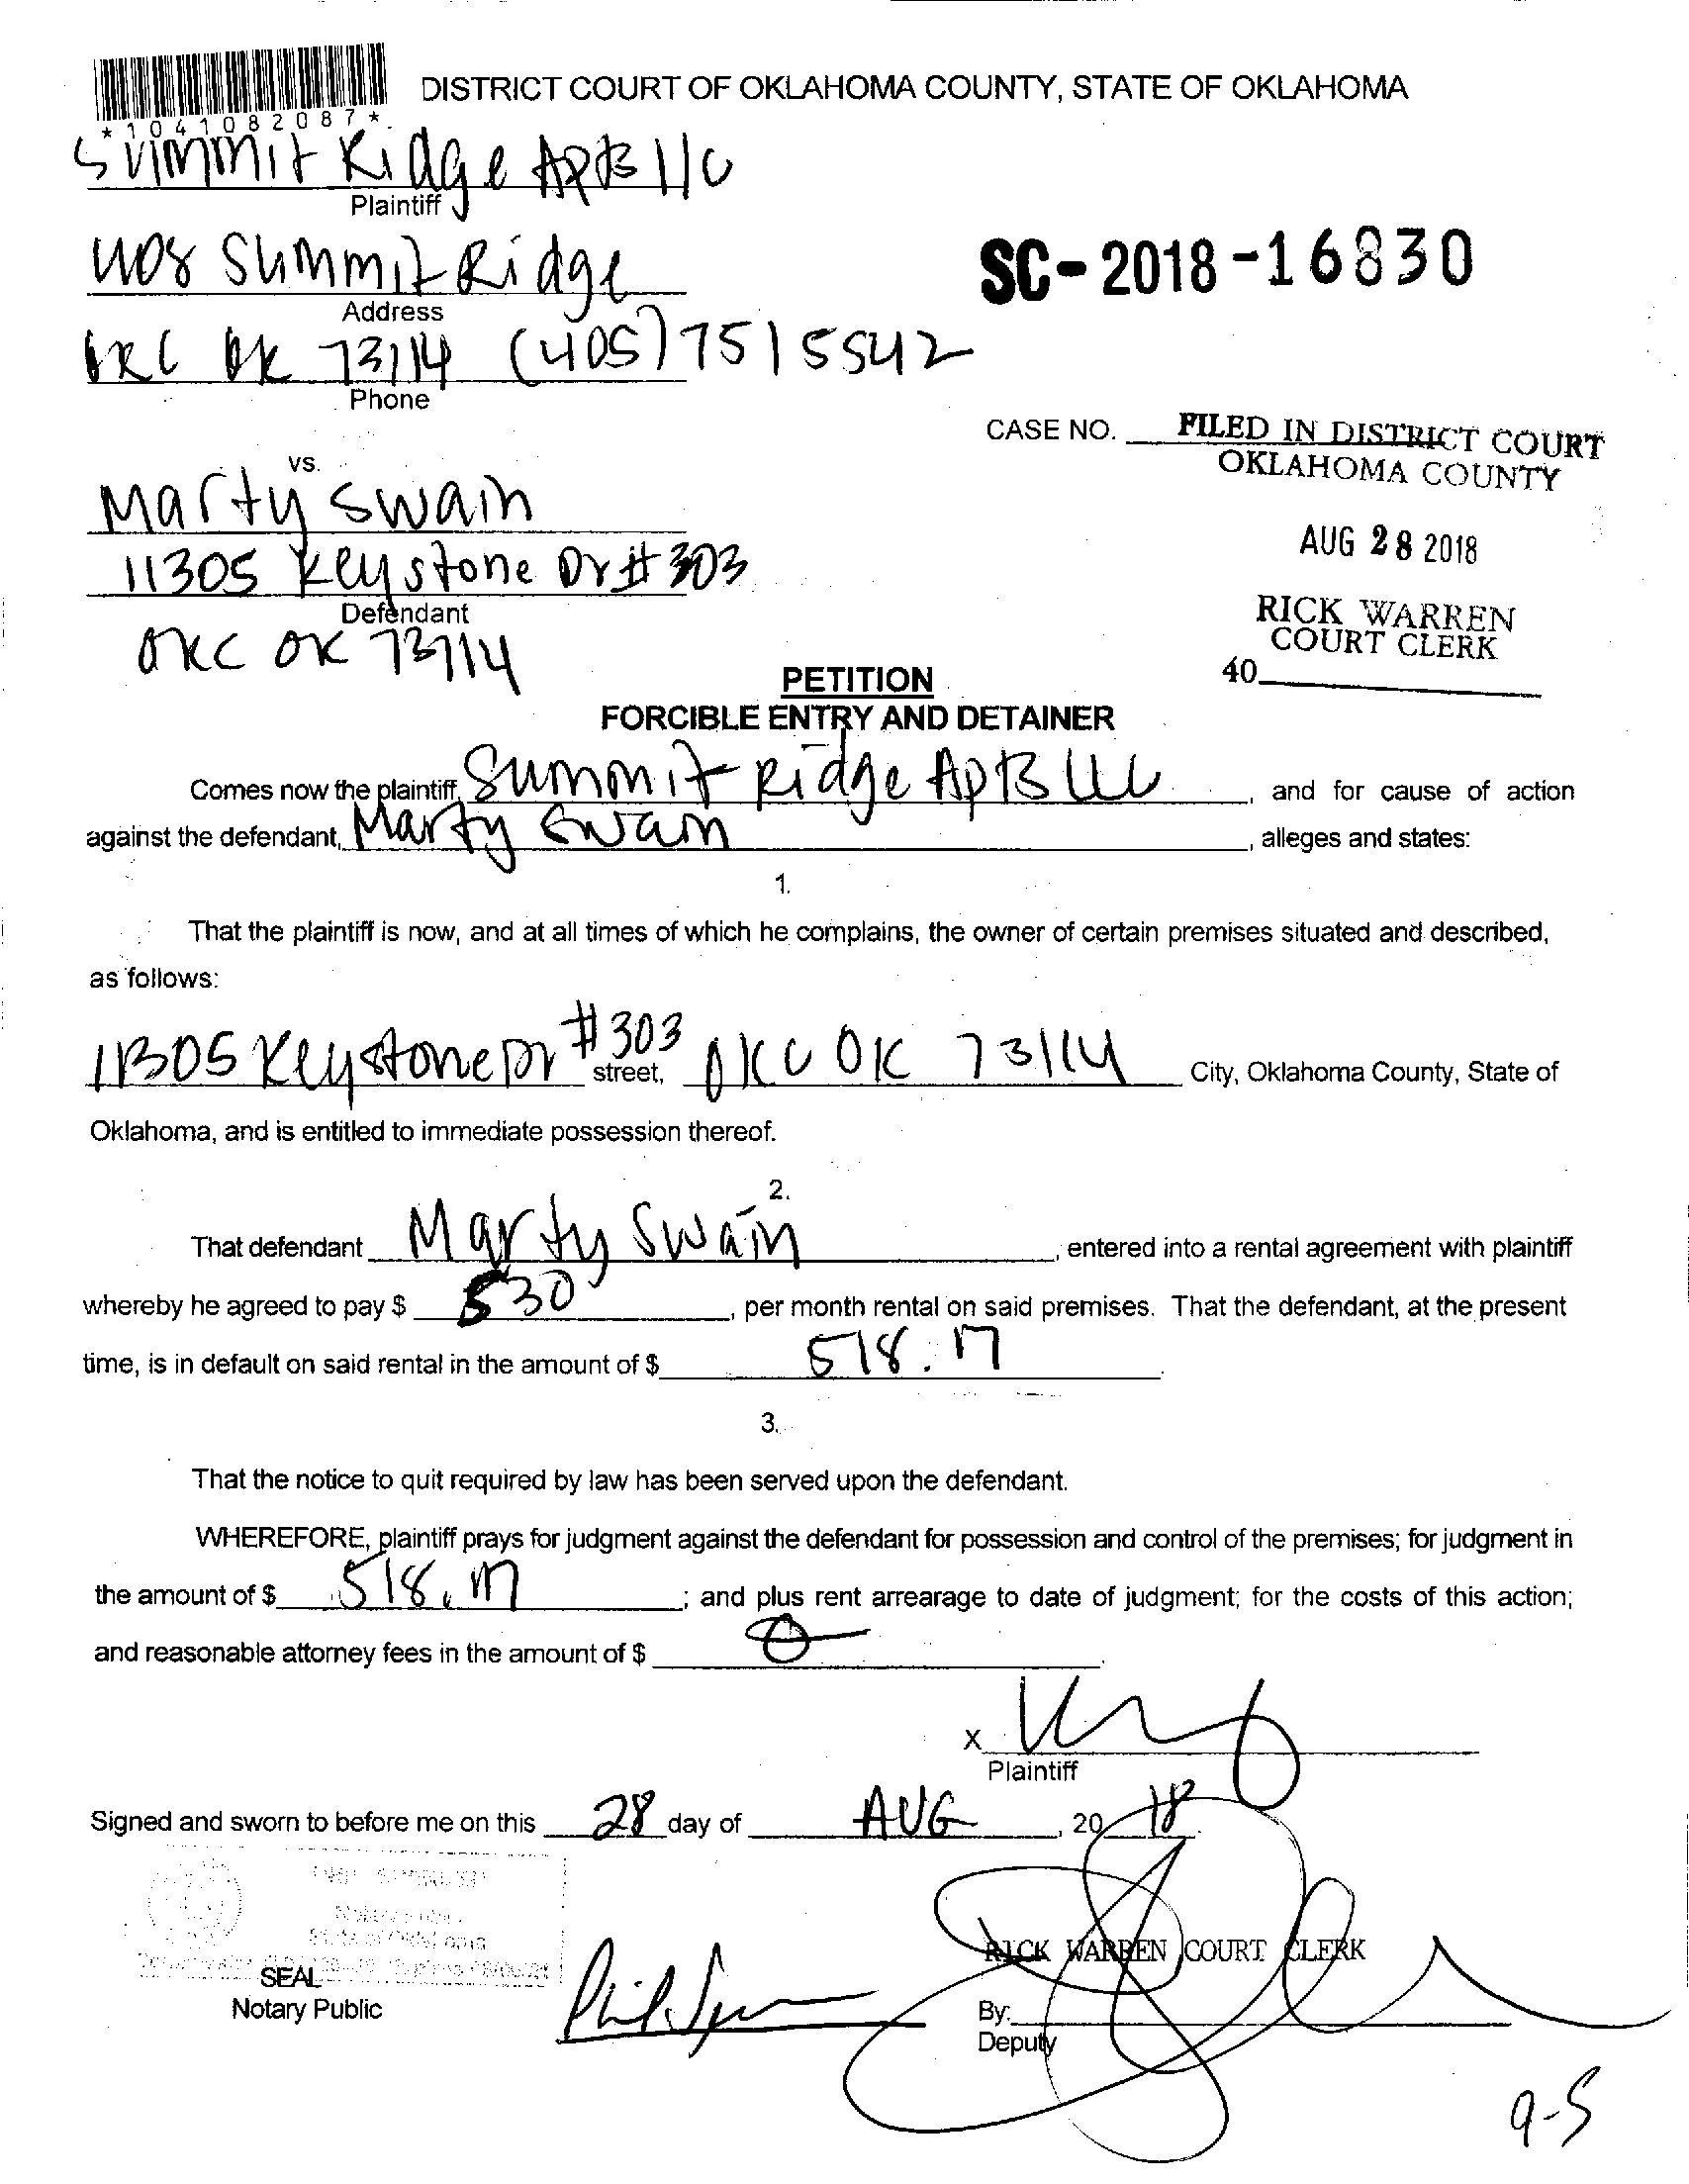 DISTRICT COURT OF OKLAHOMA COUNTY, STATE OF OKLAHOMA
*1041082087*
Summit Ridge Apts llc
Plaintiff
1108 Summit Ridge
SC-2018-16830
Address
OKC OK 73114 (405) 751 5542
Phone
CASE NO. FILED IN DISTRICT COURT
OKLAHOMA COUNTY
vs.
Marty Swain
AUG 28 2018
11305 Keystone Dr # 303
Defendant
RICK WARREN
COURT CLERK
OKC OK 73114
40
PETITION
FORCIBLE ENTRY AND DETAINER
Comes now the plaintiff, Summit Ridge Apts LLC, and for cause of action
against the defendant, Marty Swain, alleges and states:
1.
That the plaintiff is now, and at all times of which he complains, the owner of certain premises situated and described,
as follows:
11305 Keystone Dr #303 street, OKC OK 73114 City, Oklahoma County, State of
Oklahoma, and is entitled to immediate possession thereof.
2.
That defendant Marty Swain, entered into a rental agreement with plaintiff
whereby he agreed to pay $ 530, per month rental on said premises. That the defendant, at the present
time, is in default on said rental in the amount of $ 518.17.
3.
That the notice to quit required by law has been served upon the defendant.
WHEREFORE, plaintiff prays for judgment against the defendant for possession and control of the premises; for judgment in
the amount of $ 518.17; and plus rent arrearage to date of judgment; for the costs of this action;
and reasonable attorney fees in the amount of $ 0.
X
Plaintiff
Signed and sworn to before me on this 28 day of AUG, 20 18.
RICK WARREN COURT CLERK
SEAL
Notary Public
By:
Deputy
9-5